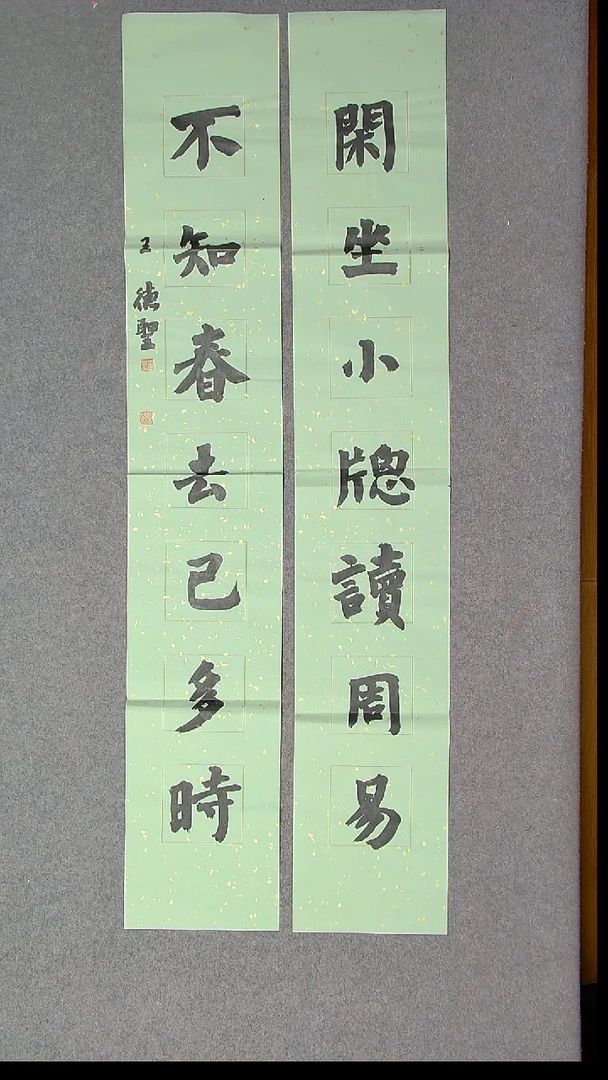 閑坐小牕讀周易
不知春去已多時
王德聖